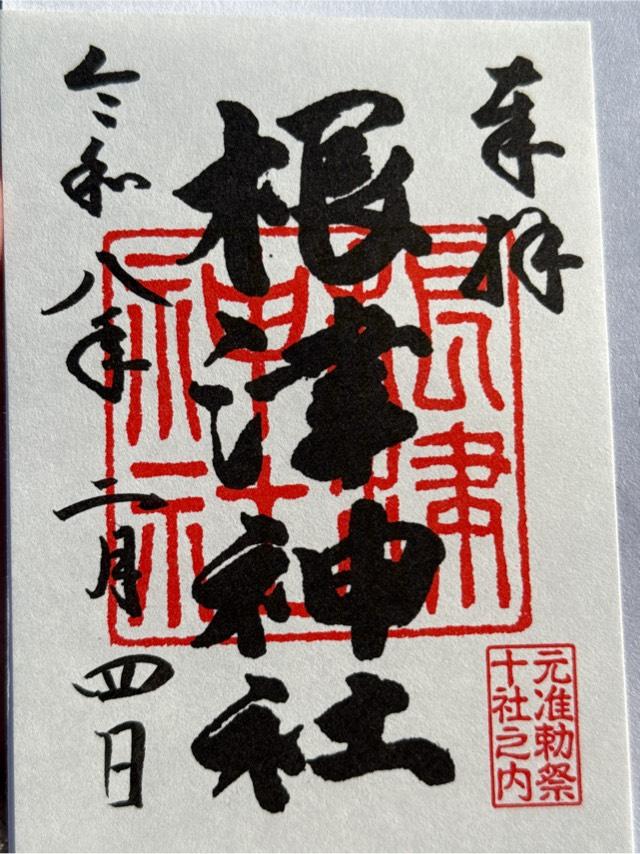 奉拝
根津神社
根津神社
元准勅祭
十社之内
令和八年二月四日